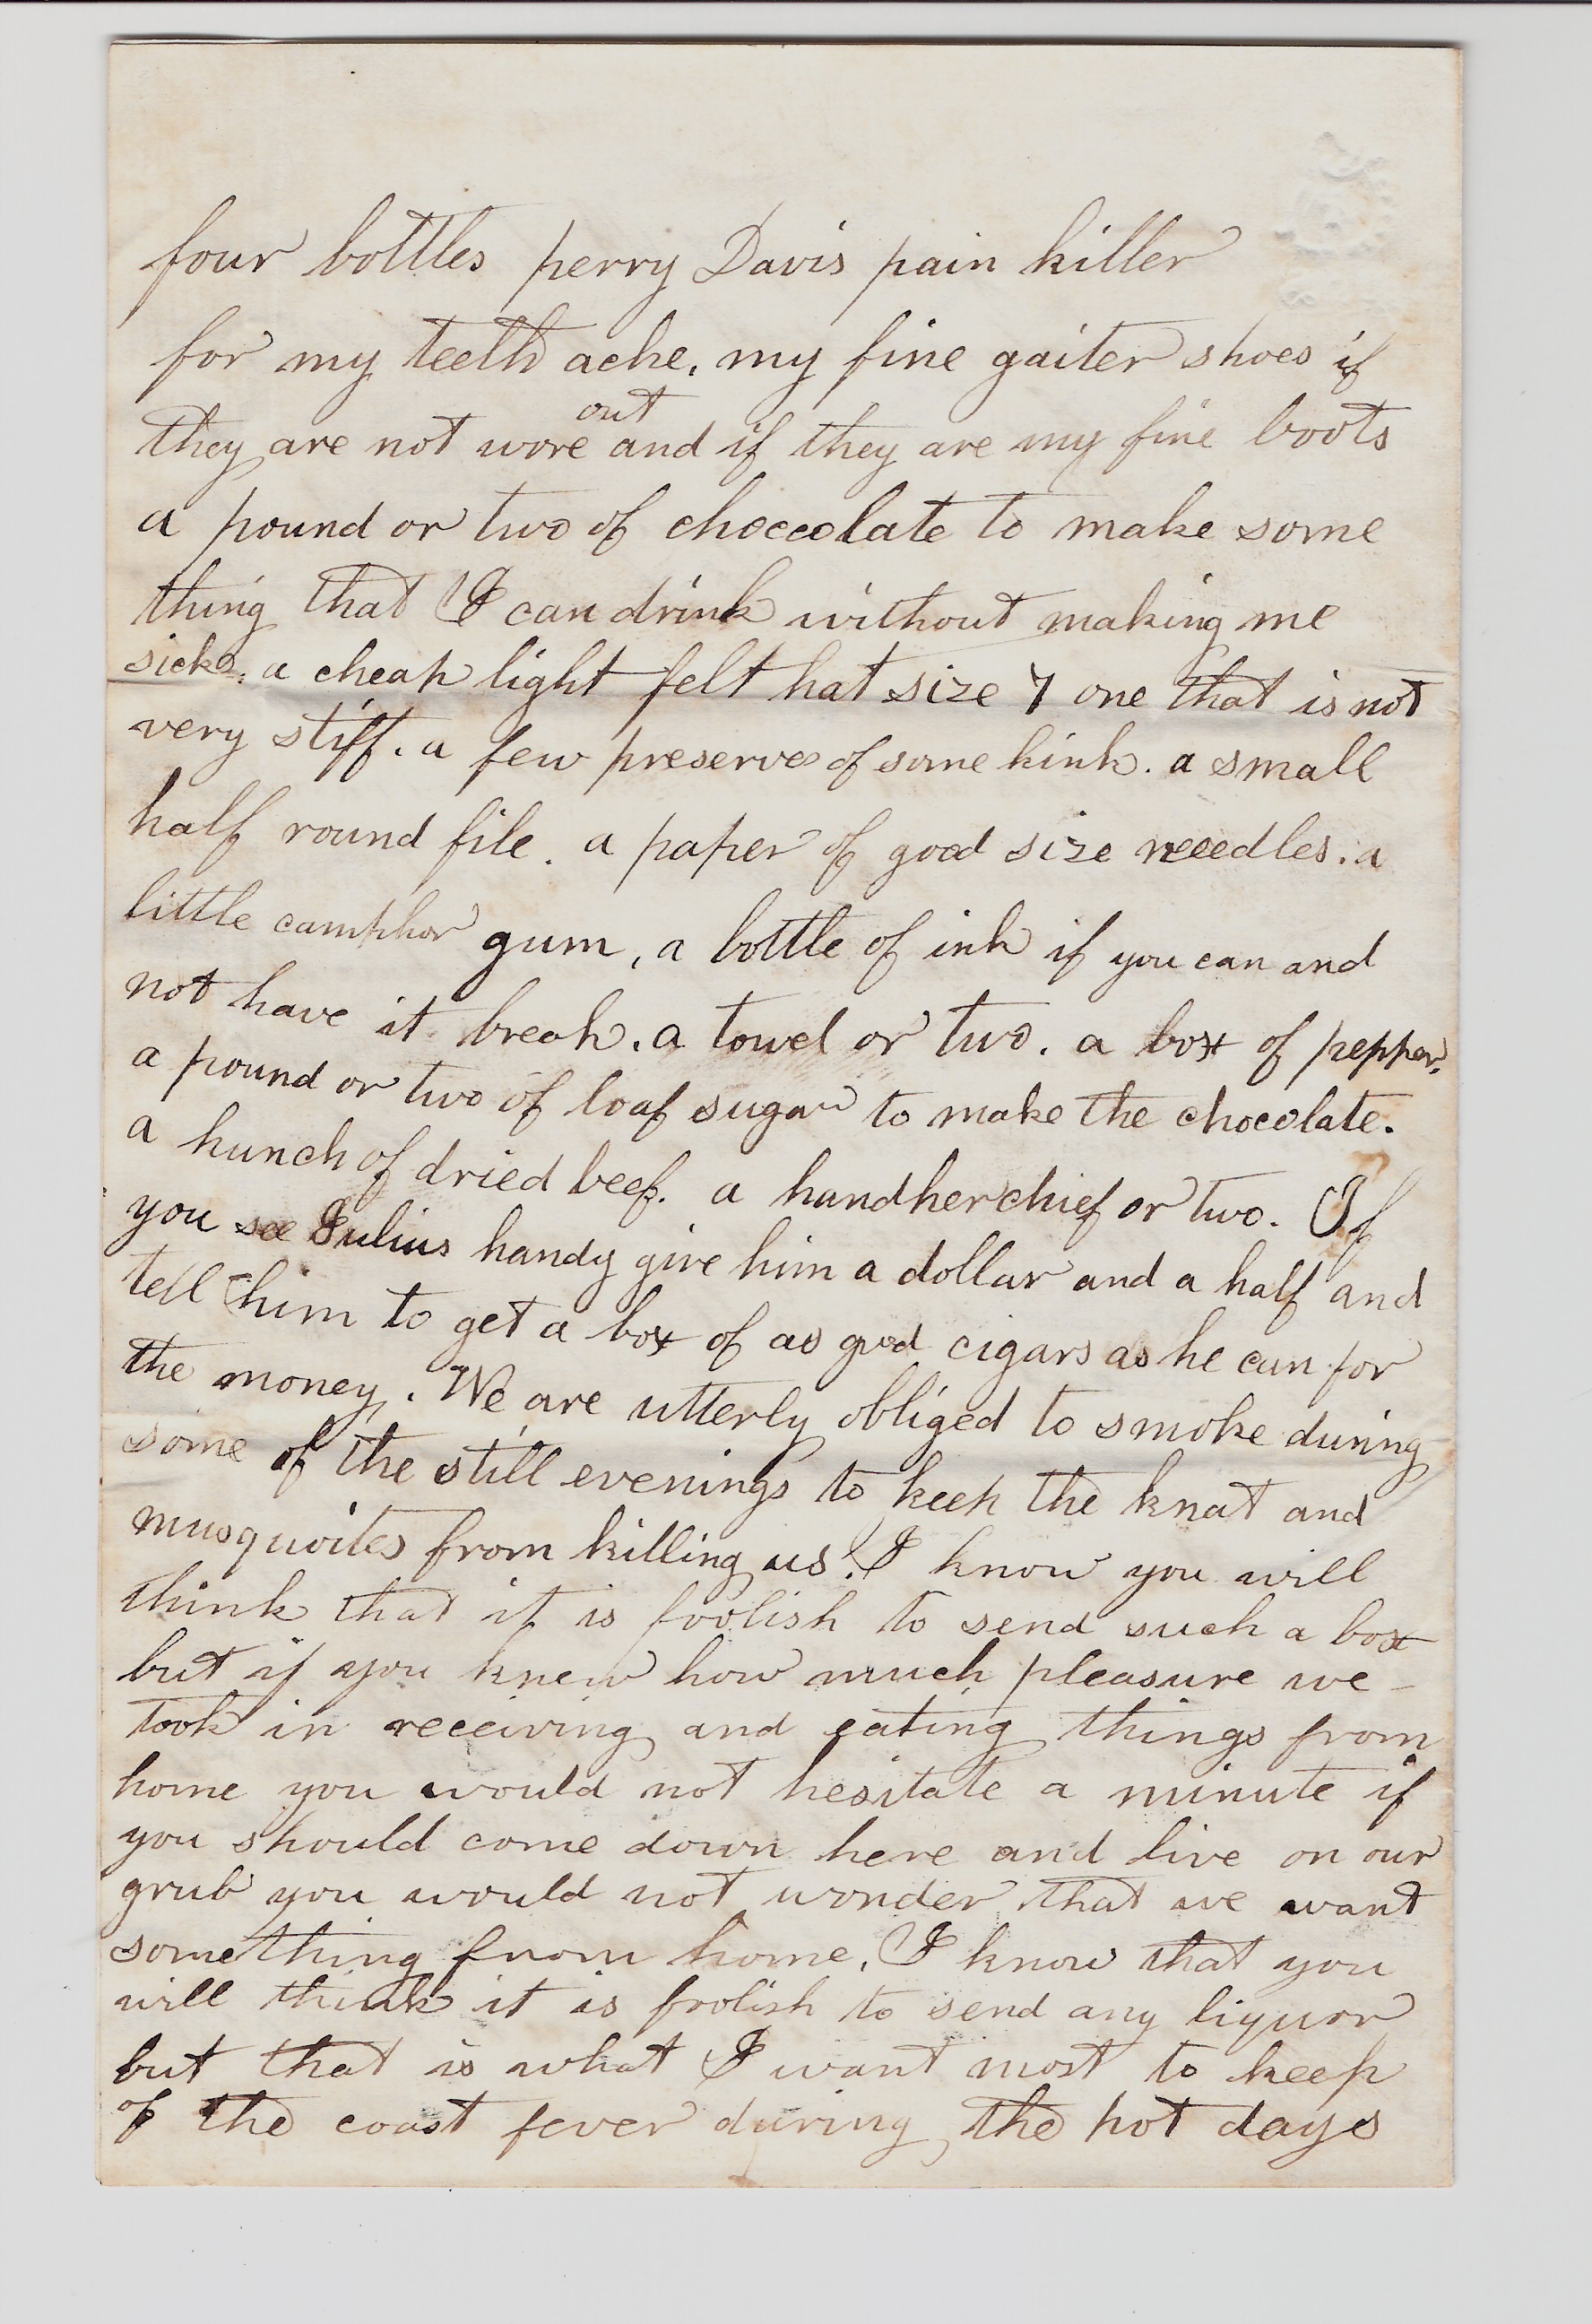 four bottles perry Davis pain killer
for my teeth ache. my fine gaiter shoes if
out
they are not wore and if they are my fine boots
a pound or two of choccolate to make some
thing that I can drink without making me
sick. a cheap light felt hat size 7 one that is not
very stiff. a few preserves of some kink. a small
half round file. a paper of good size neeedles. a
little camphor gum, a bottle of ink if you can and
not have it break. a towel or two. a box of pepper.
a pound or two of loaf sugar to make the chocolate.
a hunch of dried beef. a handkerchief or two. If
you see Julius handy give him a dollar and a half and
tell him to get a box of as good cigars as he can for
the money. We are utterly obliged to smoke during
some of the still evenings to keep the knat and
musquoites from killing us. I know you will
think that it is foolish to send such a box
but if you knew how much pleasure we
took in receiving and eating things from
home you would not hesitate a minute if
you should come down here and live on our
grub you would not wonder that we want
something from home. I know that you
will think it is foolish to send any liquor
but that is what I want most to keep
of the coast fever during the hot days